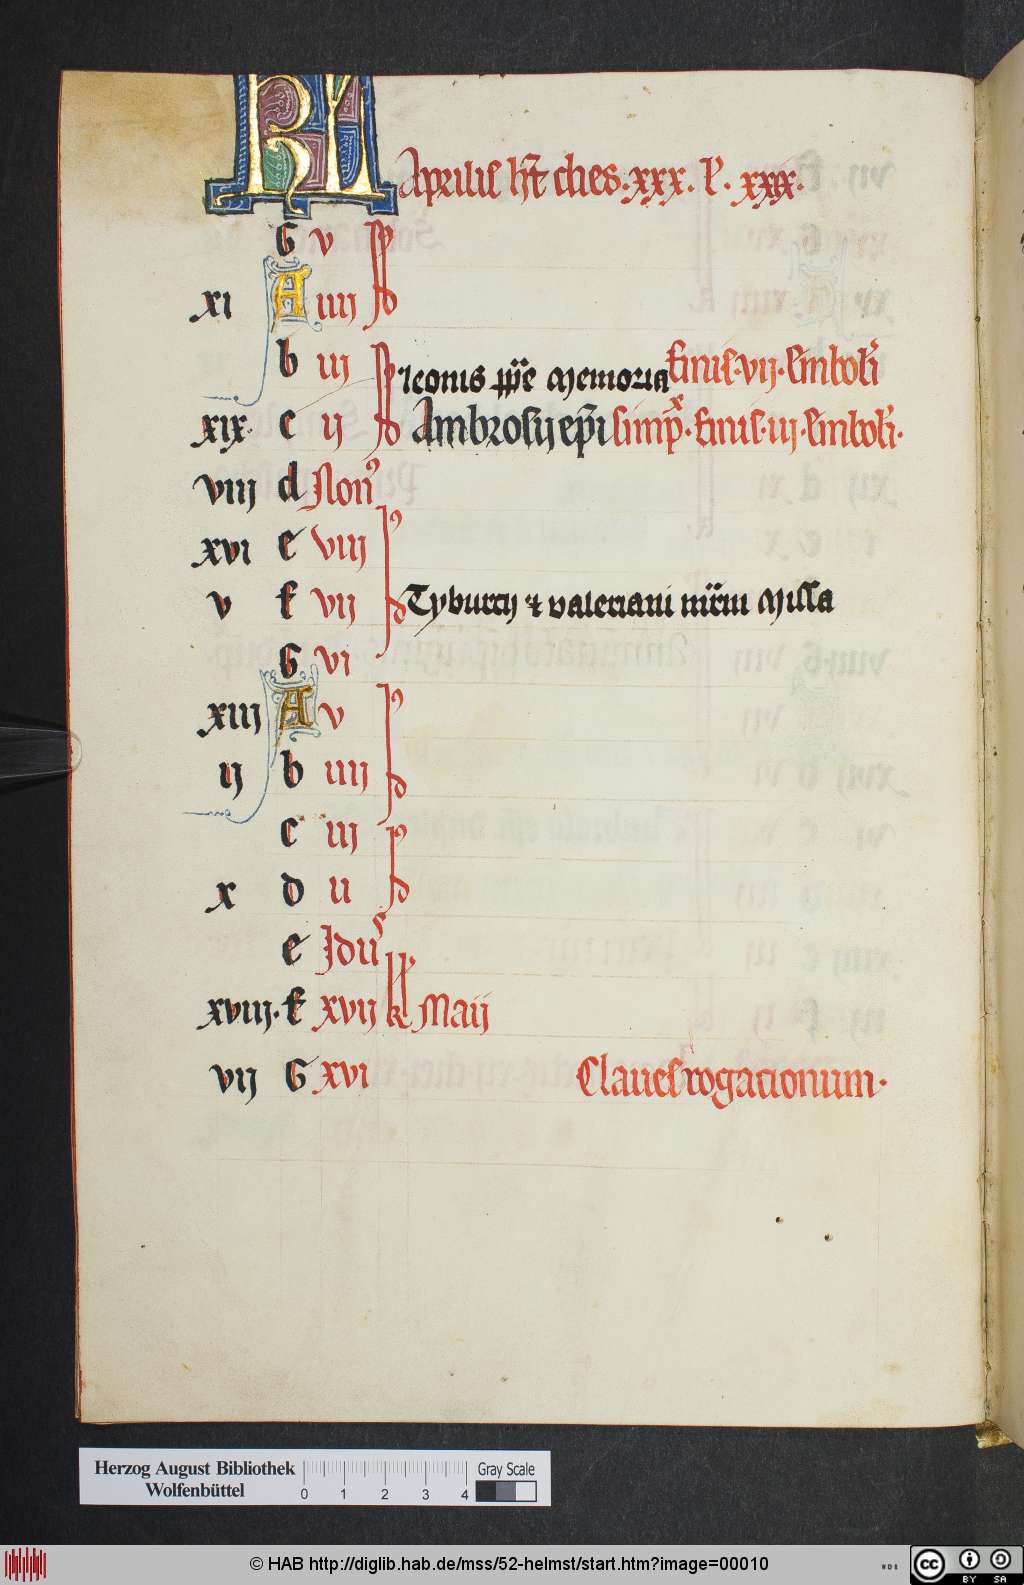 KL Aprilis ht dies . xxx . l' . xxx .
G v
xi A iiij
b iij Leonis ppe Memoria finis . vij . simboli
xix . c ij Ambrosij epi simp . finis . iij . simboli .
viij d Non
xvi e viij
v f vij Tyburcij et valeriani mrm Missa
G vi
xiij A v
ij b iiij
c iij
x d ii
e Idus
xviij . f xvij kl Maij
vij G xvi Claues rogacionum .
Herzog August Bibliothek
Wolfenbüttel
0 1 2 3 4
Gray Scale
© HAB http://diglib.hab.de/mss/52-helmst/start.htm?image=00010
WDB
cc BY SA